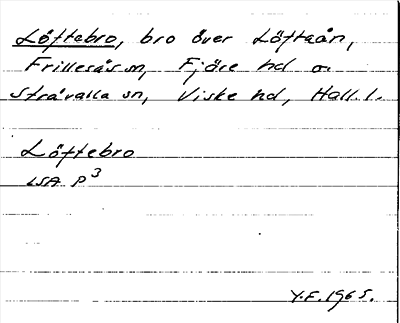 Löftebro, bro över Löfteån,
Frillesås sn, Fjäre hd o.
Stråvalla sn, Viske hd, Hall. l.
Löftebro
LSA P3
Y.F. 1965.